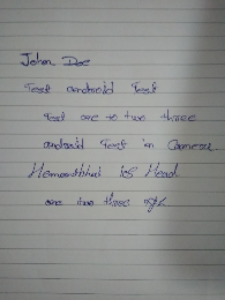 John Doe
Test android Test
Test one to two three
android Test in Camera
is Head
one two three